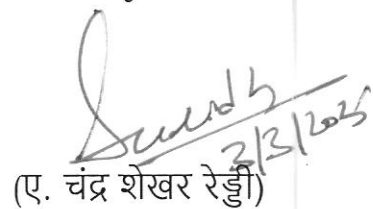 3/3/2025
(ए. चंद्र शेखर रेड्डी)